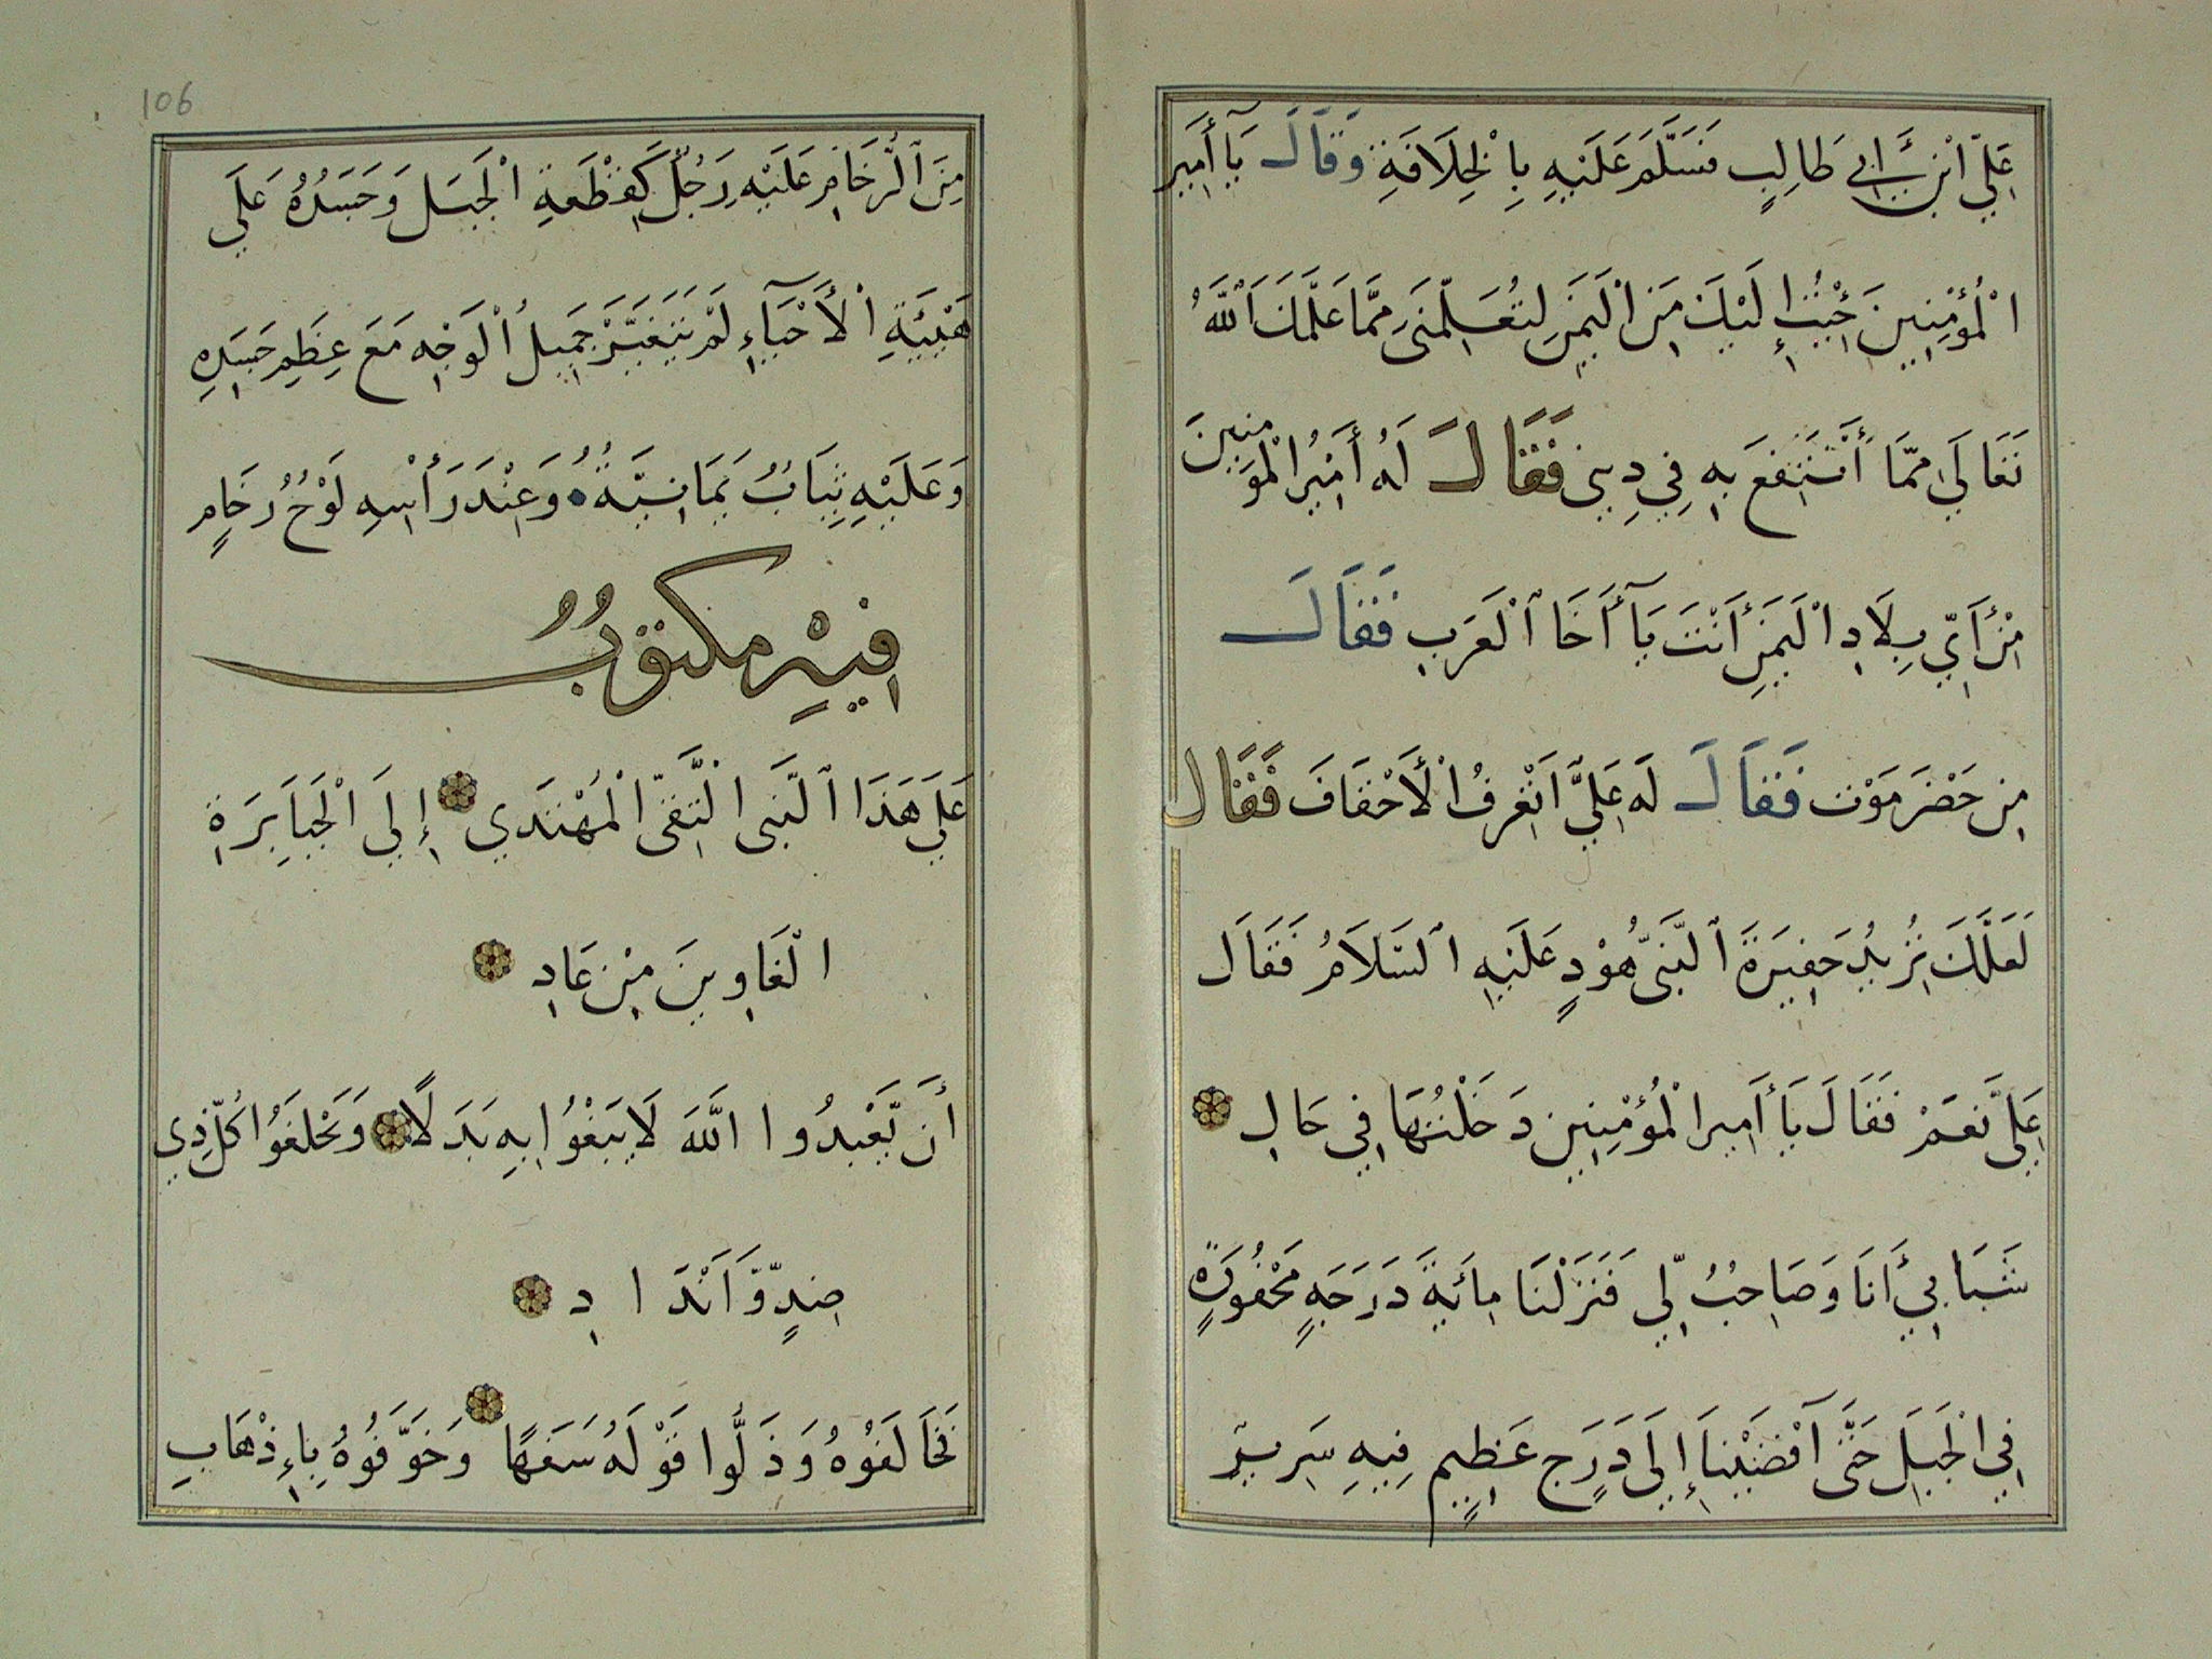 عَلِيِّ ابْنِ أَبِي طَالِبٍ فَسَلَّمَ عَلَيْهِ بِالْخِلَافَةِ وَقَالَ يَآ أَمِيرَ
الْمُؤْمِنِينَ جِئْتُ إِلَيْكَ مِنَ الْيَمَنِ لِتُعَلِّمَنِي مِمَّا عَلَّمَكَ اللَّهُ
تَعَالَى مِمَّا أَنْتَفِعُ بِهِ فِي دِينِي فَقَالَ لَهُ أَمِيْرُ الْمُؤمِنِينَ
مِنْ أَيِّ بِلَادِ الْيَمَنِ أَنْتَ يَآ أَخَا الْعَرَبِ فَقَالَ
مِنْ حَضْرَمَوْتَ فَقَالَ لَهُ عَلِيٌّ اَتَعْرِفُ الْأَحْقَافَ فَقَالَ
لَعَلَّكَ تُرِيدُ حَفِيرَةَ النَّبِيِّ هُوْدٍ عَلَيْهِ السَّلَامُ فَقَالَ
عَلِيٌّ نَعَمْ فَقَالَ يَا أَمِيرَ الْمُؤْمِنِينَ دَخَلْتُهَا فِي حَالِ
شَبَابِي أَنَا وَصَاحِبٌ لِّي فَنَزَلْنَا مِائَةَ دَرَجَةٍ مَحْفُورَةٍ
فِي الْجَبَلِ حَتَّى اَفْضَيْنَا إِلَى دَرَجٍ عَظِيمٍ فِيهِ سَرِيرٌ
106
مِنَ الرُّخَامِ عَلَيْهِ رَجُلٌ كَقِطْعَةِ الْجَبَلِ وَجَسَدُهُ عَلَى
هَيْئَةِ الْأَحْيَآءِ لَمْ يَتَغَيَّرْ جَمِيلُ الْوَجْهِ مَعَ عِظَمِ جَسَدِهِ
وَعَلَيْهِ ثِيَابٌ يَمَانِيَّةٌ وَعِنْدَ رَأْسِهِ لَوْحُ رُخَامٍ
فِيْهِ مَكتوبٌ
عَلَى هَذَا النَّبِي التَّقِيِّ الْمُهْتَدِي إِلَى الْجَبَابِرَةِ
الْغَاوِينَ مِنْ عَادِ
أَن يَّعْبُدُوا اللَّهَ لَا يَبْغُوا بِهِ بَدَلًا وَيَخْلَعُوا كُلَّ ذِي
ضِدٍّ وَّاَنْدَادِ
فَخَالَفُوْهُ وَذَلُّوا قَوْلَهُ سَفَهًا وَخَوَّفُوهُ بِإِذْهَابِ